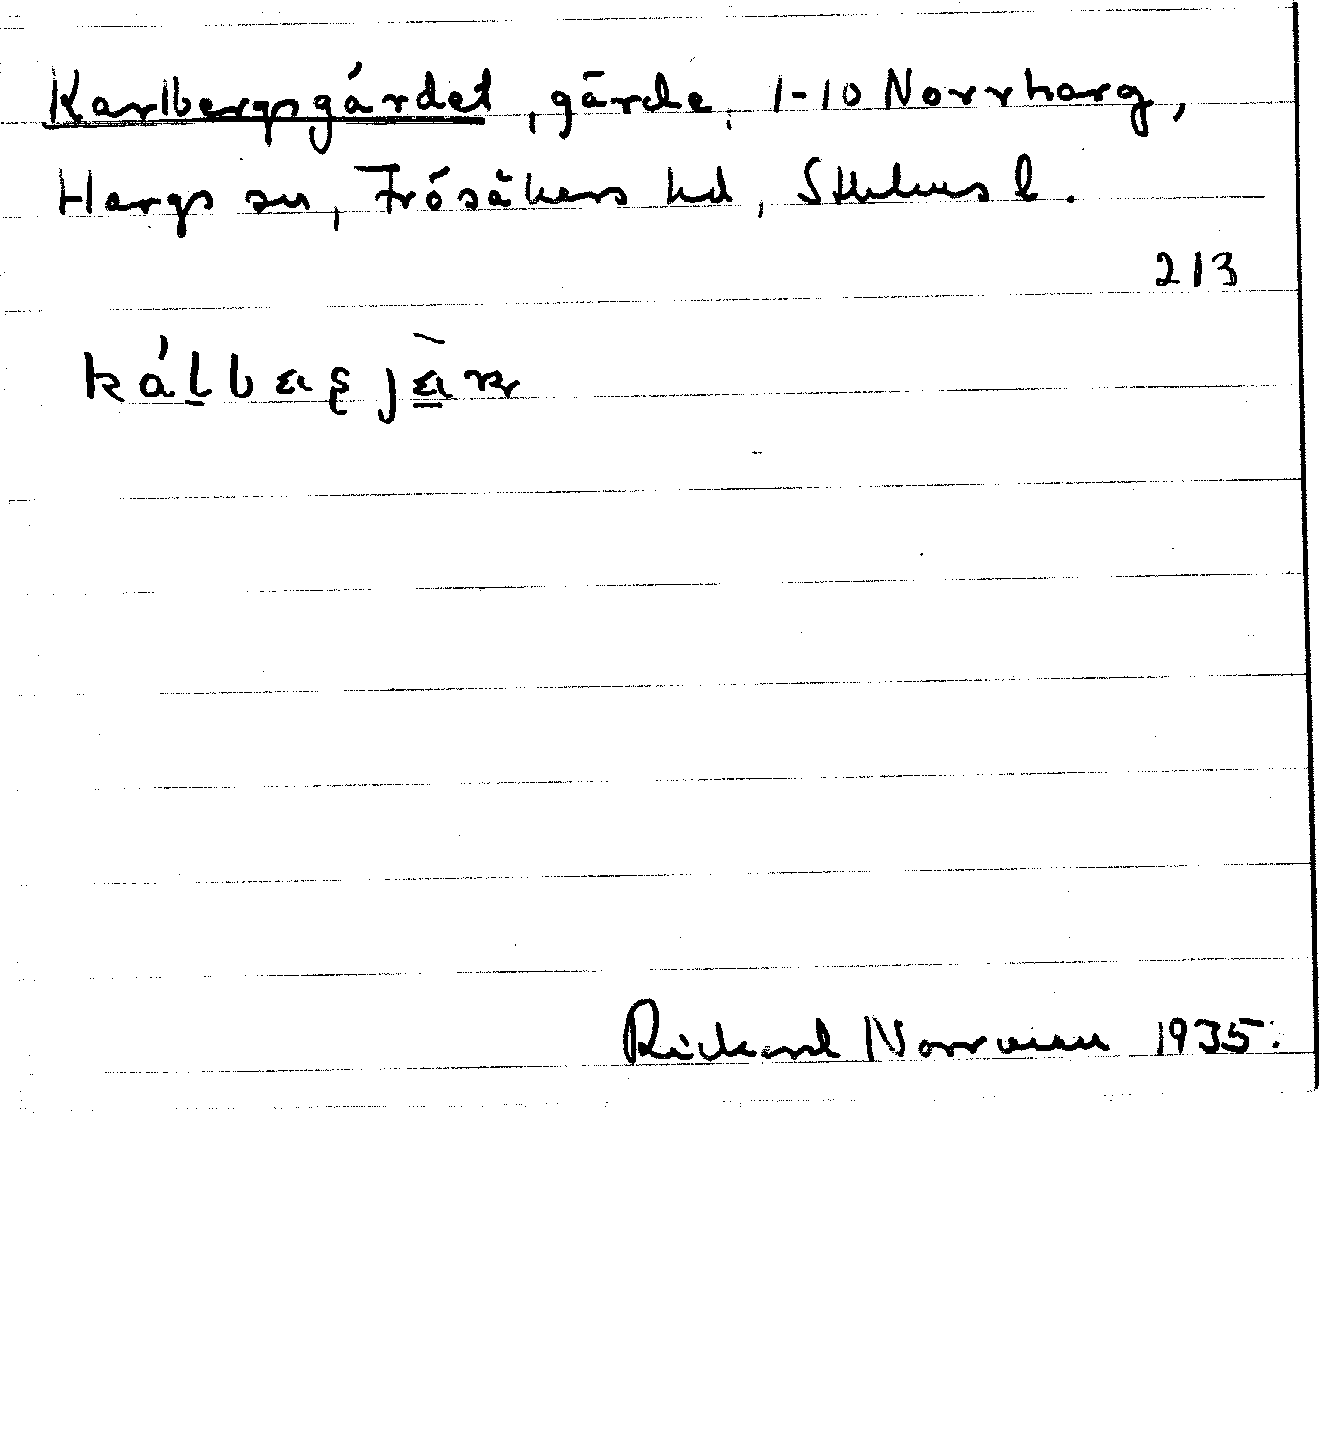 Karlbergsgärdet, gärde, 1-10 Norrharg,
Hargs sn, Frösåkers hd, Sthlms l.
213
Rickard Norrman 1935.